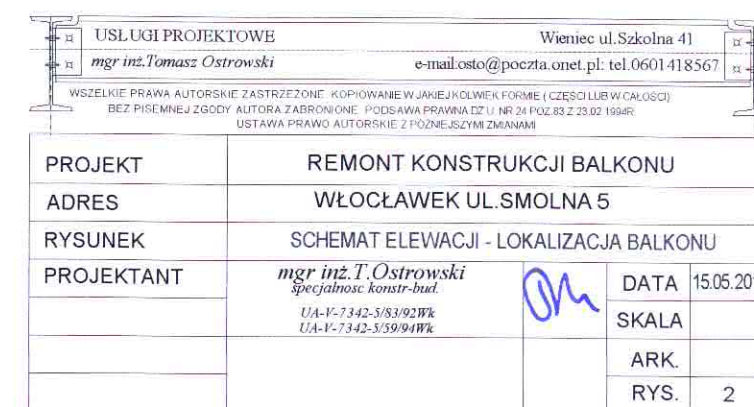 USŁUGI PROJEKTOWE Wieniec ul.Szkolna 41
mgr inż.Tomasz Ostrowski e-mail:osto@poczta.onet.pl: tel.0601418567
WSZELKIE PRAWA AUTORSKIE ZASTRZEŻONE KOPIOWANIE W JAKIEJKOLWIEK FORMIE ( CZĘŚCI LUB W CAŁOŚCI)
BEZ PISEMNEJ ZGODY AUTORA ZABRONIONE PODSAWA PRAWNA DZ U. NR 24 POZ.83 Z 23.02 1994R
USTAWA PRAWO AUTORSKIE Z PÓŹNIEJSZYMI ZMIANAMI
PROJEKT REMONT KONSTRUKCJI BALKONU
ADRES WŁOCŁAWEK UL.SMOLNA 5
RYSUNEK SCHEMAT ELEWACJI - LOKALIZACJA BALKONU
PROJEKTANT mgr inż.T.Ostrowski DATA 15.05.201
specjalnosc konstr-bud.
UA-V-7342-5/83/92Wk SKALA
UA-V-7342-5/59/94Wk
ARK.
RYS. 2